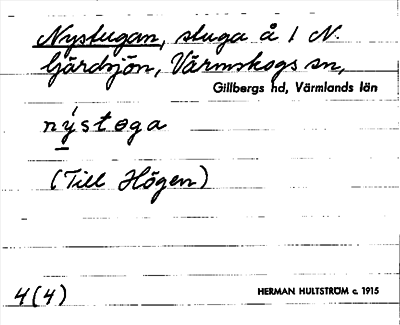 Nystugan, stuga å 1 N.
Gärdsjön, Värmskogs sn,
Gillbergs hd, Värmlands län
nýstøga
(Till Högen)
4(4)
HERMAN HULTSTRÖM c. 1915